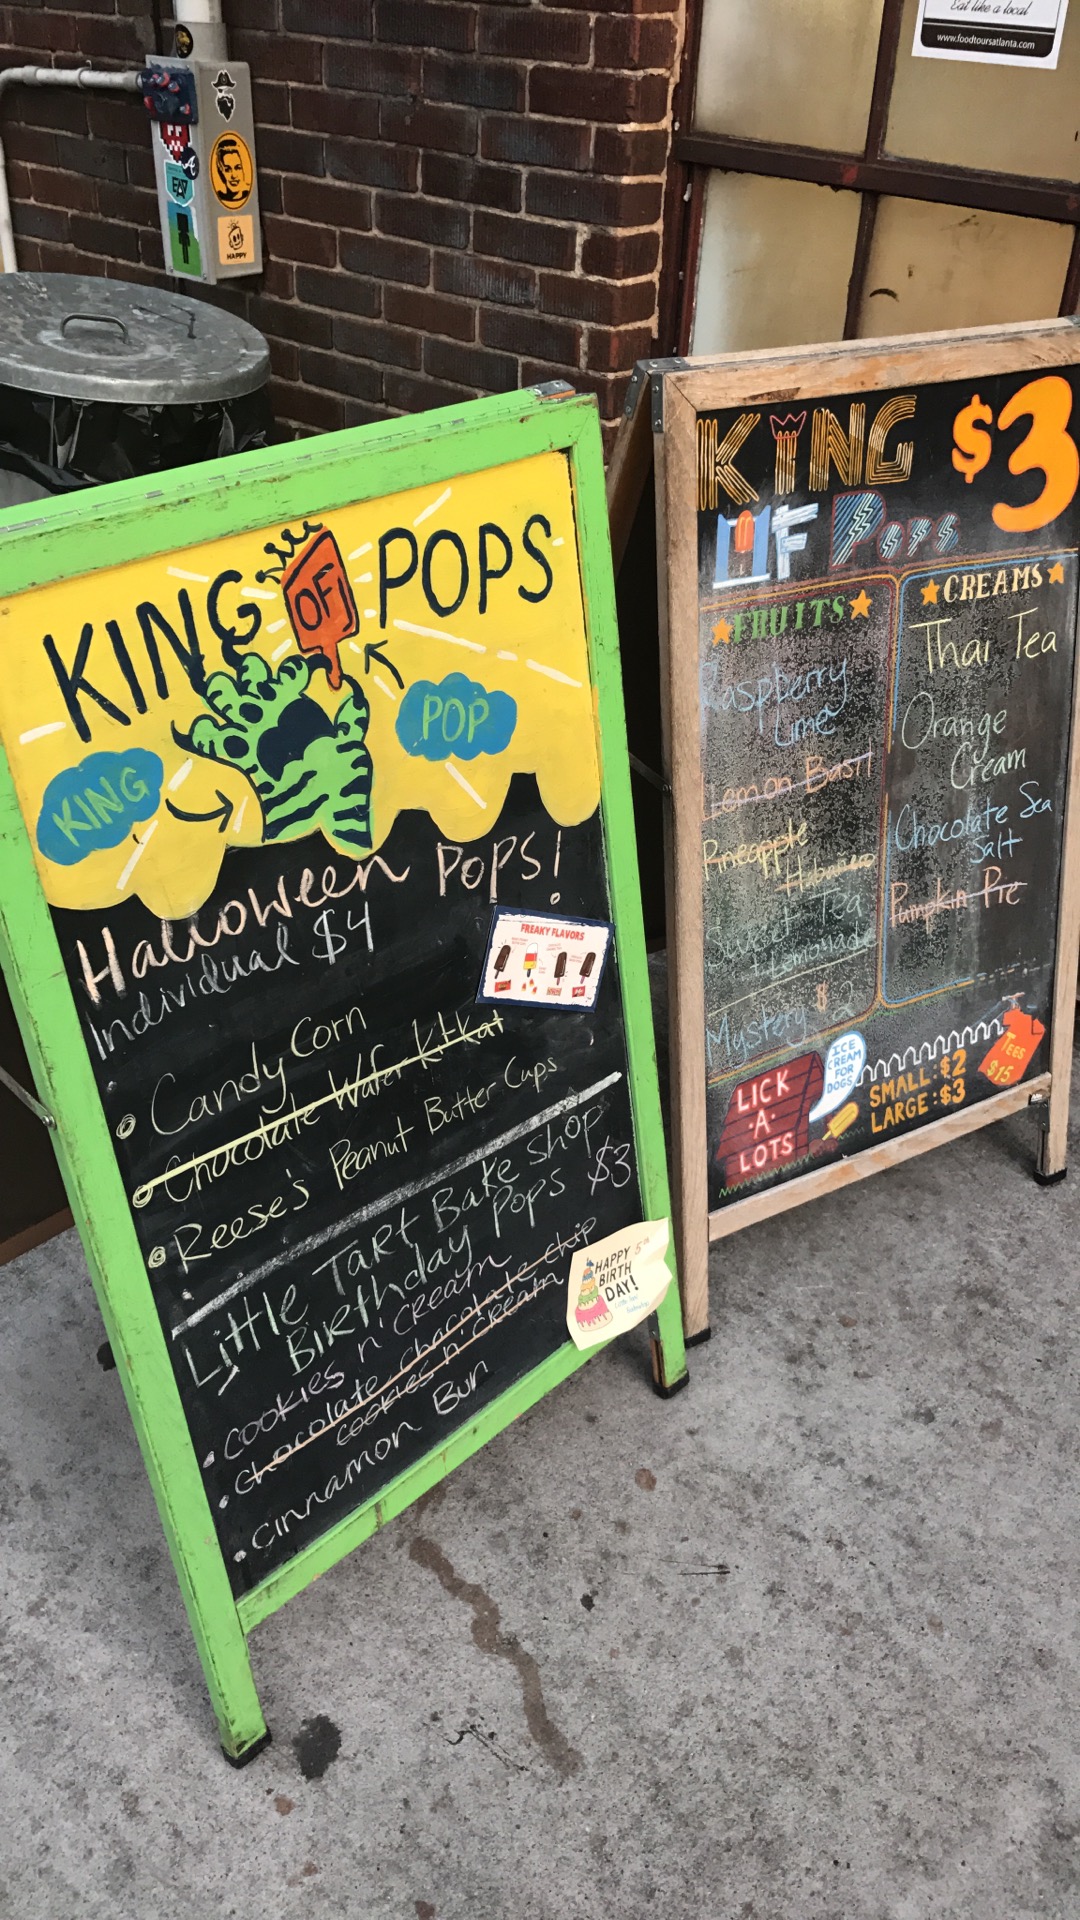 Eat like a local
www.foodtoursatlanta.com
HAPPY
KING OF POPS
POP
KING
Halloween Pops!
Individual $4
FREAKY FLAVORS
Candy Corn
Chocolate Wafer KitKat
Reese's Peanut Butter Cups
Little Tart Bake Shop
Birthday Pops $3
cookies n' cream
chocolate chocolate chip
cookies n' cream
cinnamon Bun
HAPPY 5th
BIRTH
DAY!
KING $3
OF POPS
FRUITS
Raspberry
Lime
Lemon Basil
Pineapple
Habanero
Tea
Lemonade
Mystery $2
CREAMS
Thai Tea
Orange
Cream
Chocolate Sea
Salt
Pumpkin Pie
LICK
·A·
LOTS
ICE
CREAM
FOR
DOGS
SMALL:$2
LARGE:$3
TEES
$15